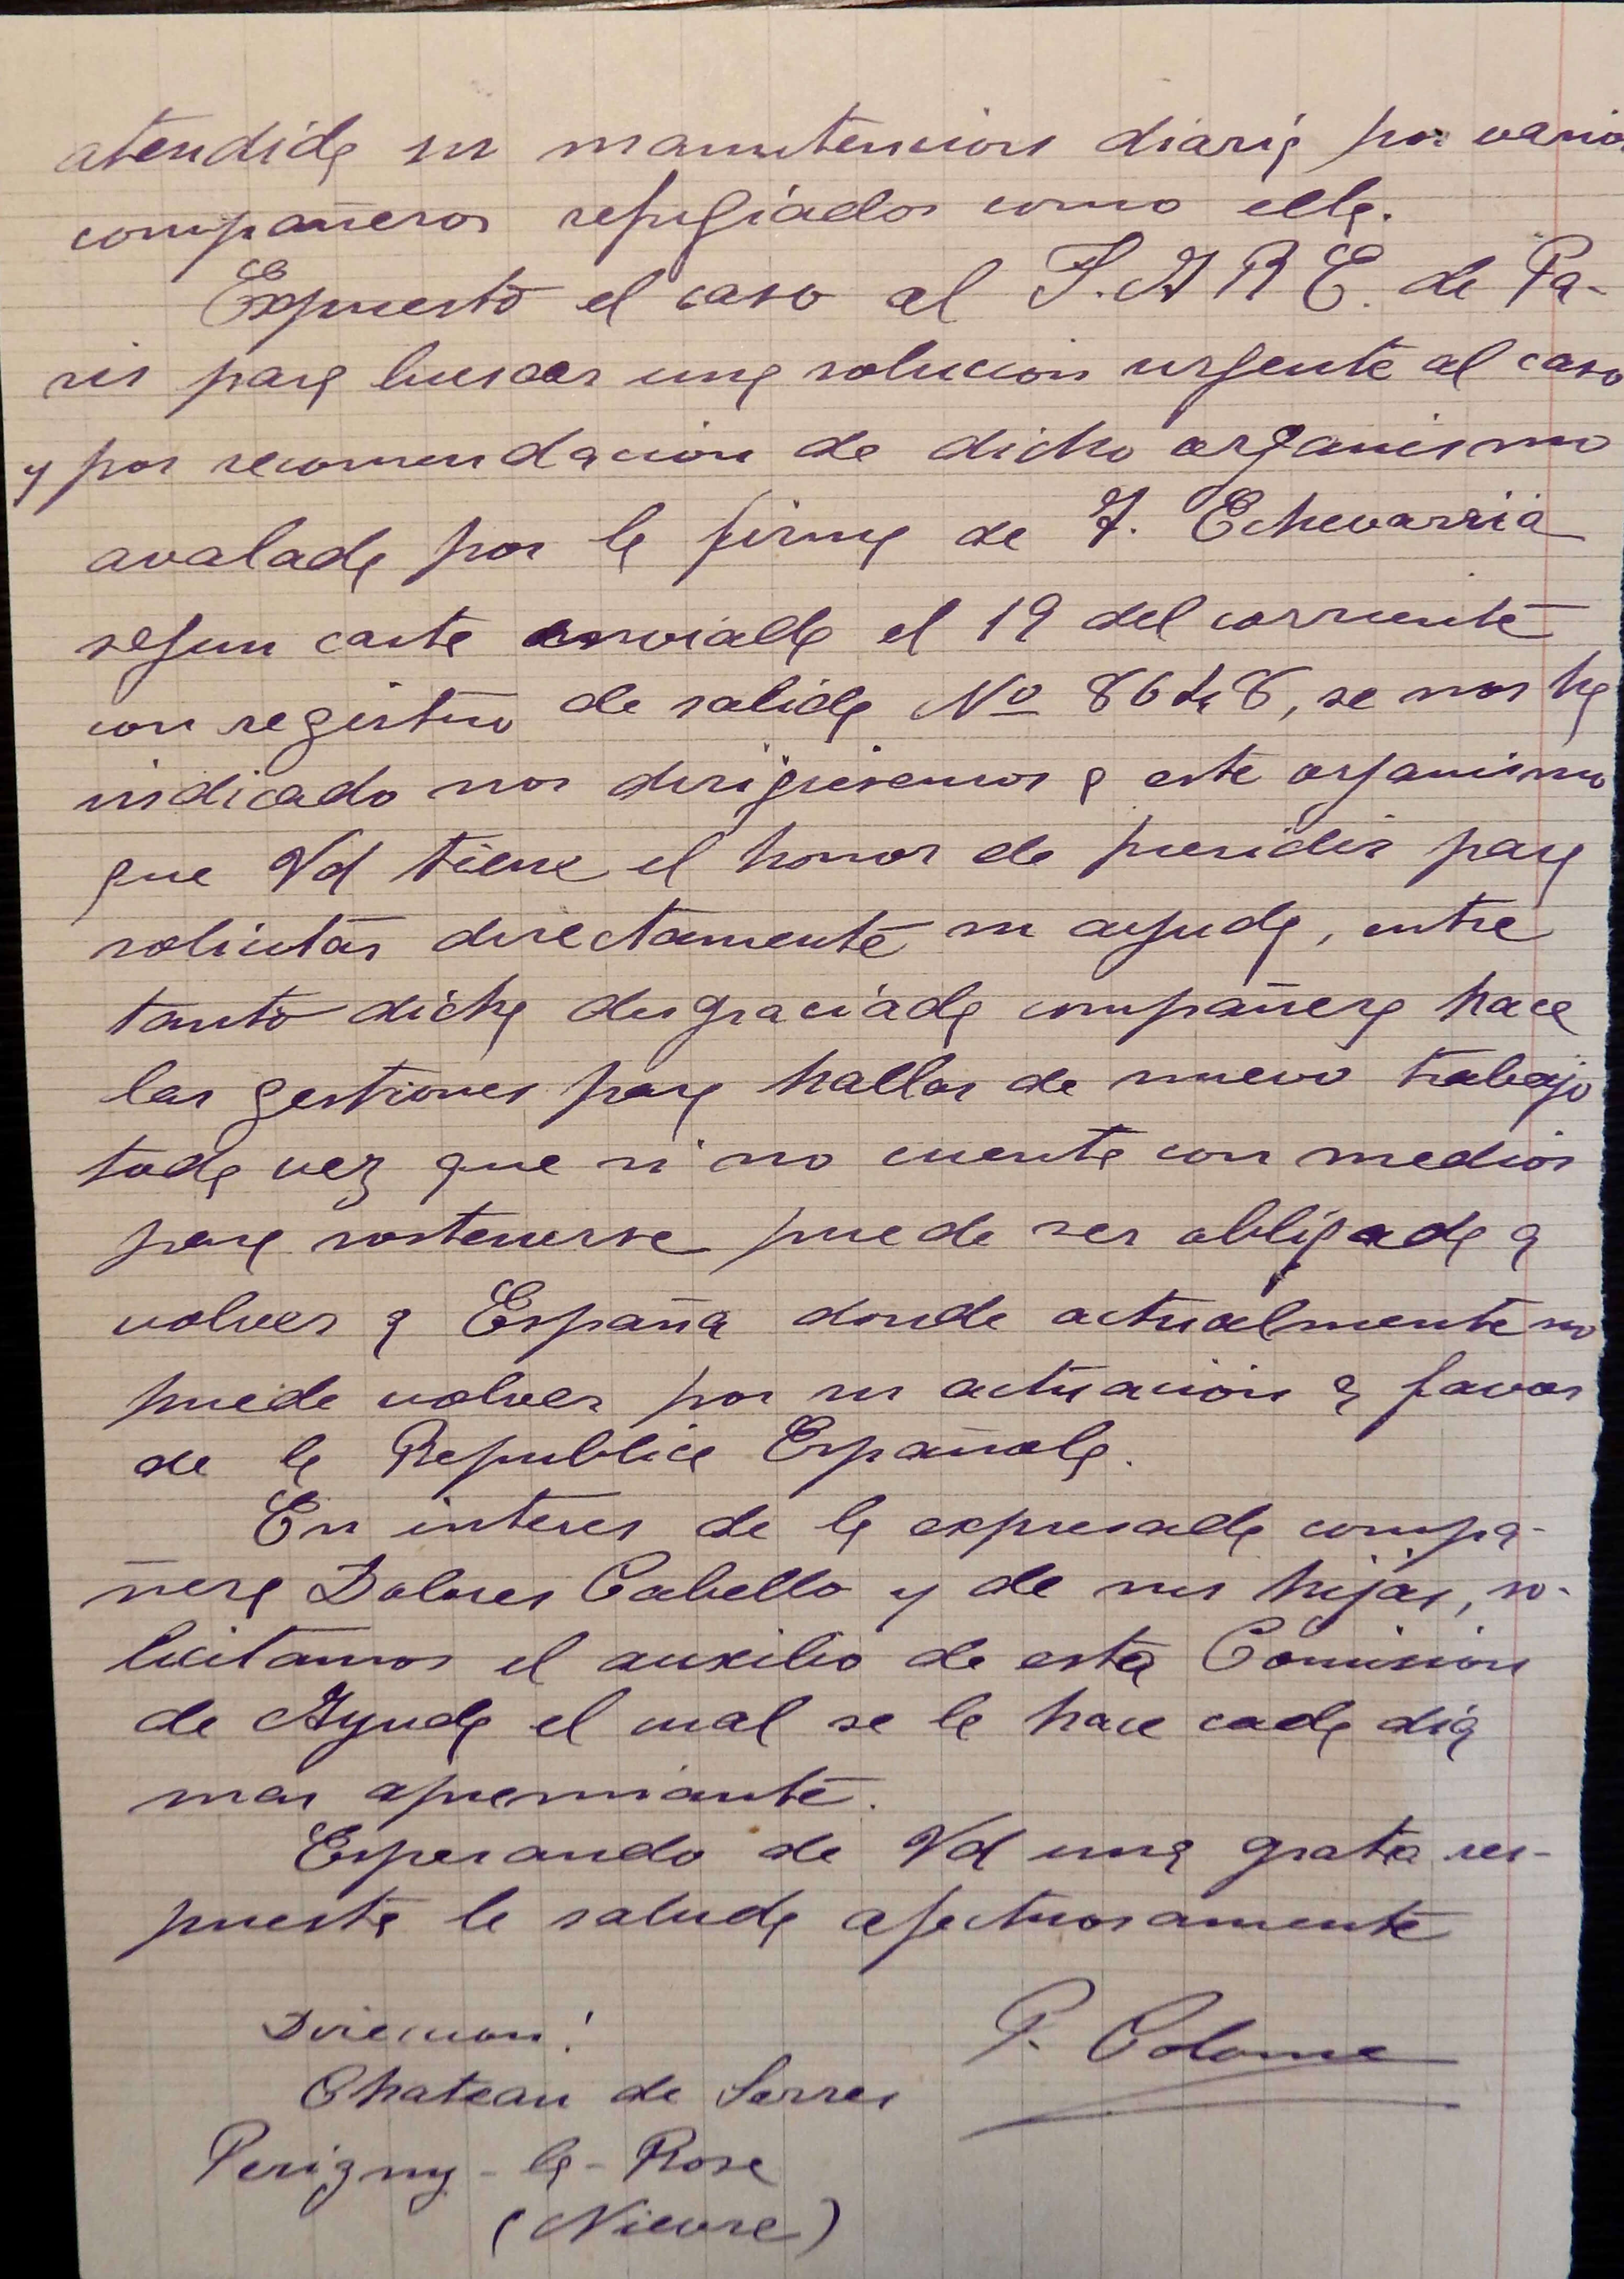 atendida su manutencion diaria por varios
compañeros refugiados como ella.
Expuesto el caso al J.A R E. de Pa-
ris para buscar una solucion urgente al caso
y por recomendacion de dicho organismo
avalada por la firma de J. Echevarria
segun carta enviada el 19 del corriente
con registro de salida Nº 8648, se nos ha
indicado nos dirigiesemos a este organismo
que Vd tiene el honor de presidir para
solicitar directamente su ayuda, entre
tanto dicha desgraciada compañera hace
las gestiones para hallar de nuevo trabajo
toda vez que si no cuenta con medios
para sostenerse puede ser obligada a
volver a España donde actualmente no
puede volver por su actuación a favor
de la Republica Española.
En interes de la expresada compa-
ñera Dolores Cabello y de sus hijas, so-
licitamos el auxilio de esta Comision
de Ayuda el cual se le hace cada dia
mas apremiante.
Esperando de Vd una grata res-
puesta le saluda afectuosamente
P. Colome
Direccion:
Chateau de Serres
Perigny-la-Rose
(Nievre)